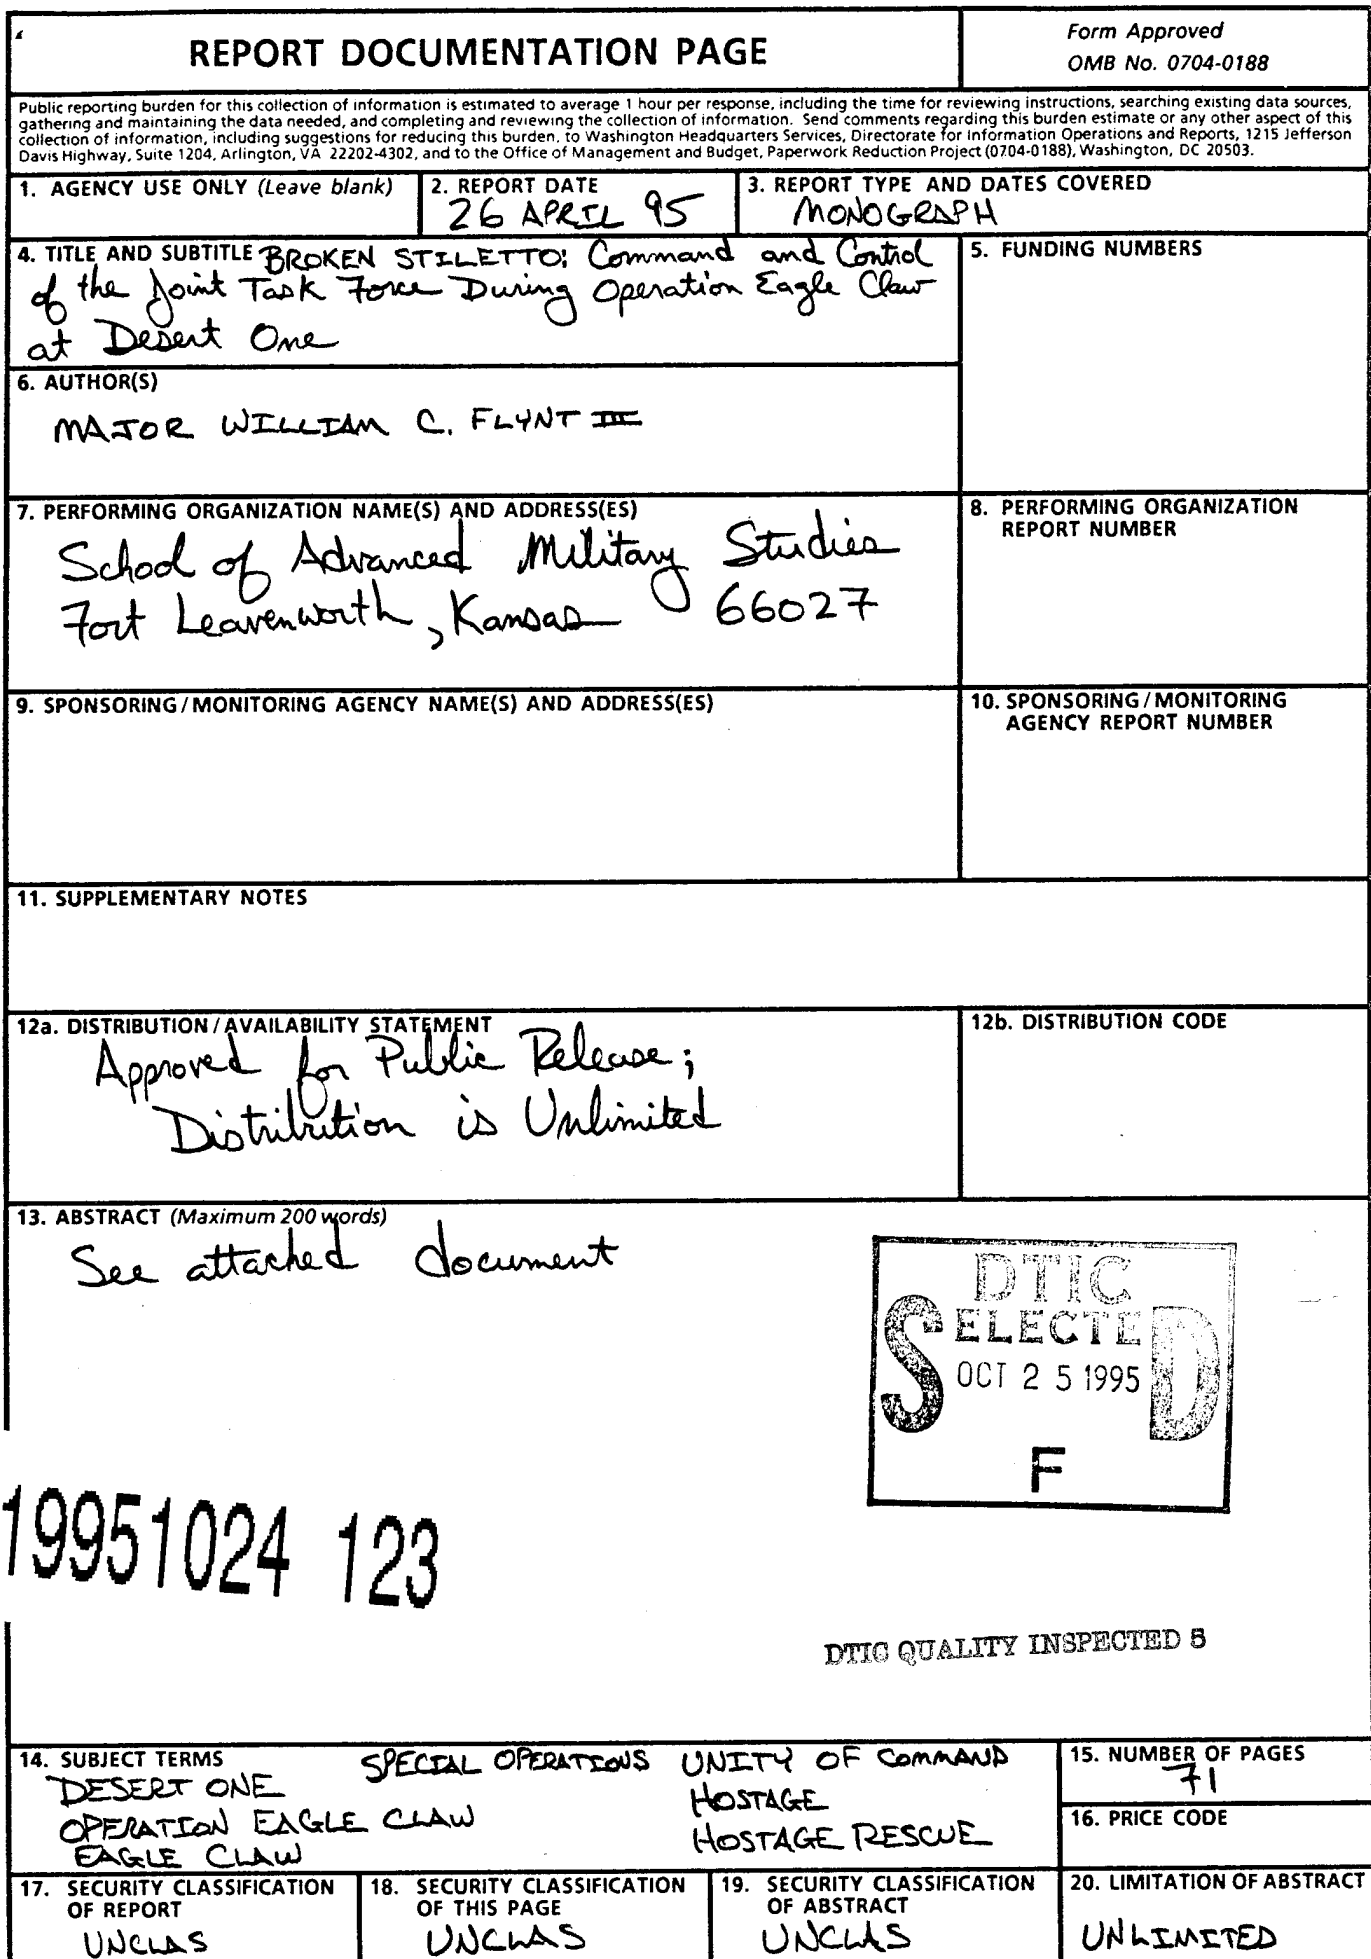 REPORT DOCUMENTATION PAGE
Form Approved
OMB No. 0704-0188
Public reporting burden for this collection of information is estimated to average 1 hour per response, including the time for reviewing instructions, searching existing data sources,
gathering and maintaining the data needed, and completing and reviewing the collection of information. Send comments regarding this burden estimate or any other aspect of this
collection of information, including suggestions for reducing this burden, to Washington Headquarters Services, Directorate for Information Operations and Reports, 1215 Jefferson
Davis Highway, Suite 1204, Arlington, VA 22202-4302, and to the Office of Management and Budget, Paperwork Reduction Project (0704-0188), Washington, DC 20503.
1. AGENCY USE ONLY (Leave blank)
2. REPORT DATE
26 APRIL 95
3. REPORT TYPE AND DATES COVERED
MONOGRAPH
4. TITLE AND SUBTITLE BROKEN STILETTO: Command and Control
of the Joint Task Force During Operation Eagle Claw
at Desert One
5. FUNDING NUMBERS
6. AUTHOR(S)
MAJOR WILLIAM C. FLYNT III
7. PERFORMING ORGANIZATION NAME(S) AND ADDRESS(ES)
School of Advanced Military Studies
Fort Leavenworth, Kansas 66027
8. PERFORMING ORGANIZATION
REPORT NUMBER
9. SPONSORING/MONITORING AGENCY NAME(S) AND ADDRESS(ES)
10. SPONSORING/MONITORING
AGENCY REPORT NUMBER
11. SUPPLEMENTARY NOTES
12a. DISTRIBUTION/AVAILABILITY STATEMENT
Approved for Public Release;
Distribution is Unlimited
12b. DISTRIBUTION CODE
13. ABSTRACT (Maximum 200 words)
See attached document
DTIC
SELECTED
OCT 25 1995
F
19951024 123
DTIC QUALITY INSPECTED 5
14. SUBJECT TERMS
DESERT ONE
OPERATION EAGLE CLAW
EAGLE CLAW
SPECIAL OPERATIONS UNITY OF COMMAND
HOSTAGE
HOSTAGE RESCUE
15. NUMBER OF PAGES
71
16. PRICE CODE
17. SECURITY CLASSIFICATION
OF REPORT
UNCLAS
18. SECURITY CLASSIFICATION
OF THIS PAGE
UNCLAS
19. SECURITY CLASSIFICATION
OF ABSTRACT
UNCLAS
20. LIMITATION OF ABSTRACT
UNLIMITED